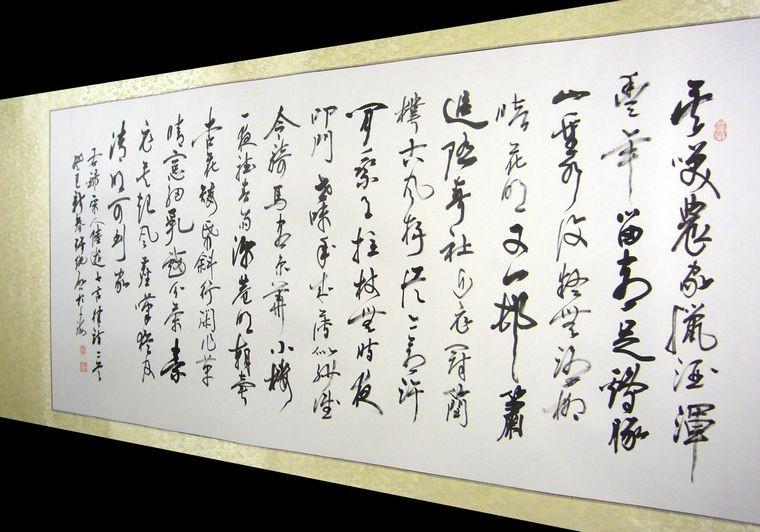 莫笑農家臘酒渾
豐年留客足雞豚
山重水複疑無路柳
暗花明又一邨簫
追隨春社近衣冠簡
樸古風存從今若許
閒乘月拄杖無時夜
叩門 世味年來薄似紗誰
令騎馬客京華小樓
一夜聽春雨深巷明朝賣
杏花矮紙斜行閒作草
晴窗細乳戲分茶素
衣莫起風塵嘆猶及
清明可到家
宋人陸遊七言律詩二首
新春於上海